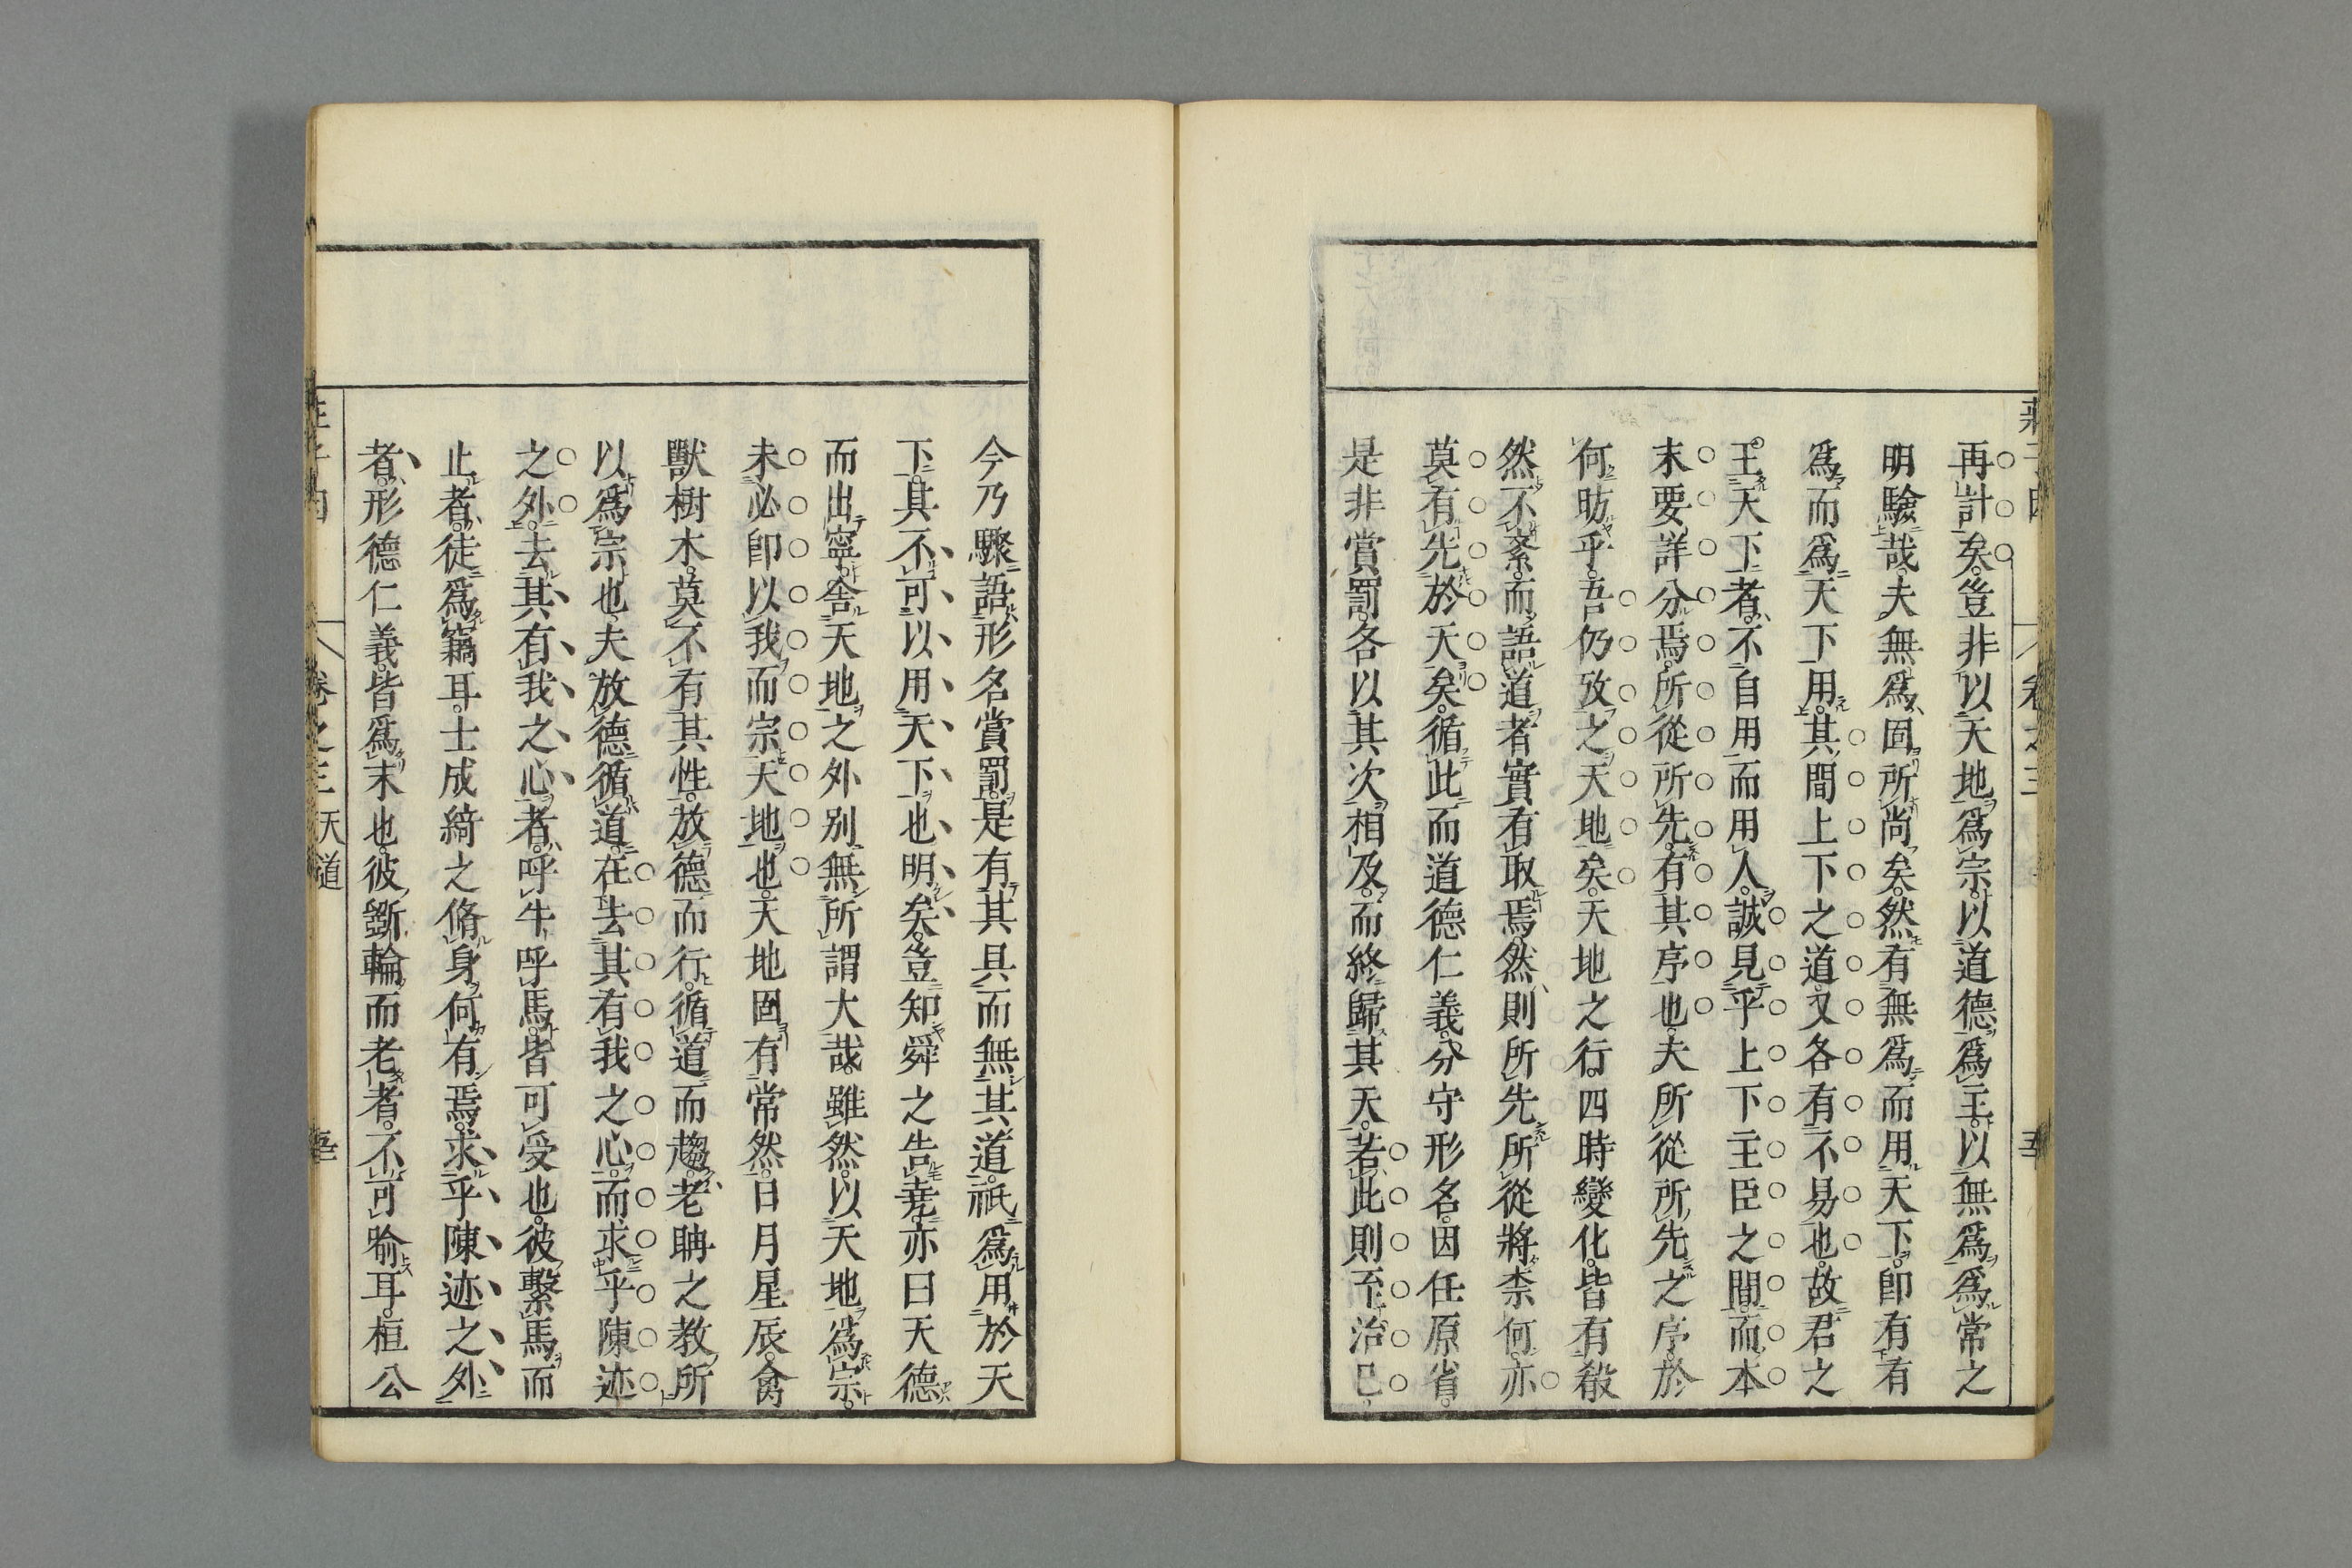 再計矣。豈非以天地爲宗。以道德爲王。以無爲爲常之
明驗哉。夫無爲固所尚矣。然有無爲而用天下。卽有有
爲而爲天下用。其間上下之道。又各有不易也。故君之
王天下者。不自用而用人。誠見乎上下主臣之間。而本
末要詳分焉。所從所先。有其序也。夫所從所先之序。於
何昉乎。吾仍攷之天地矣。天地之行。四時變化。皆有殺
然不紊。而語道者實有取焉。然則所先所從將柰何。亦
莫有先於天矣。循此而道德仁義。分守形名。因任原省。
是非賞罰。各以其次相及。而終歸其天。若此則至治已。
今乃驟語形名賞罰。是有其具而無其道。祇爲用於天
下。其不可以用天下也明矣。豈知舜之告堯。亦曰天德
而出寧。舍天地之外別無所謂大哉。雖然。以天地爲宗。
未必卽以我而宗天地也。天地固有常然。日月星辰。禽
獸樹木。莫不有其性。放德而行。循道而趨。老聃之教所
以爲宗也。夫放德循道。在去其有我之心。而求乎陳迹
之外。去其有我之心者。呼牛呼馬。皆可受也。彼繫馬而
止者。徒爲竊耳。士成綺之脩身。何有焉。求乎陳迹之外
者。形德仁義。皆爲末也。彼斵輪而老者。不可喻耳。桓公
卷之三 天道